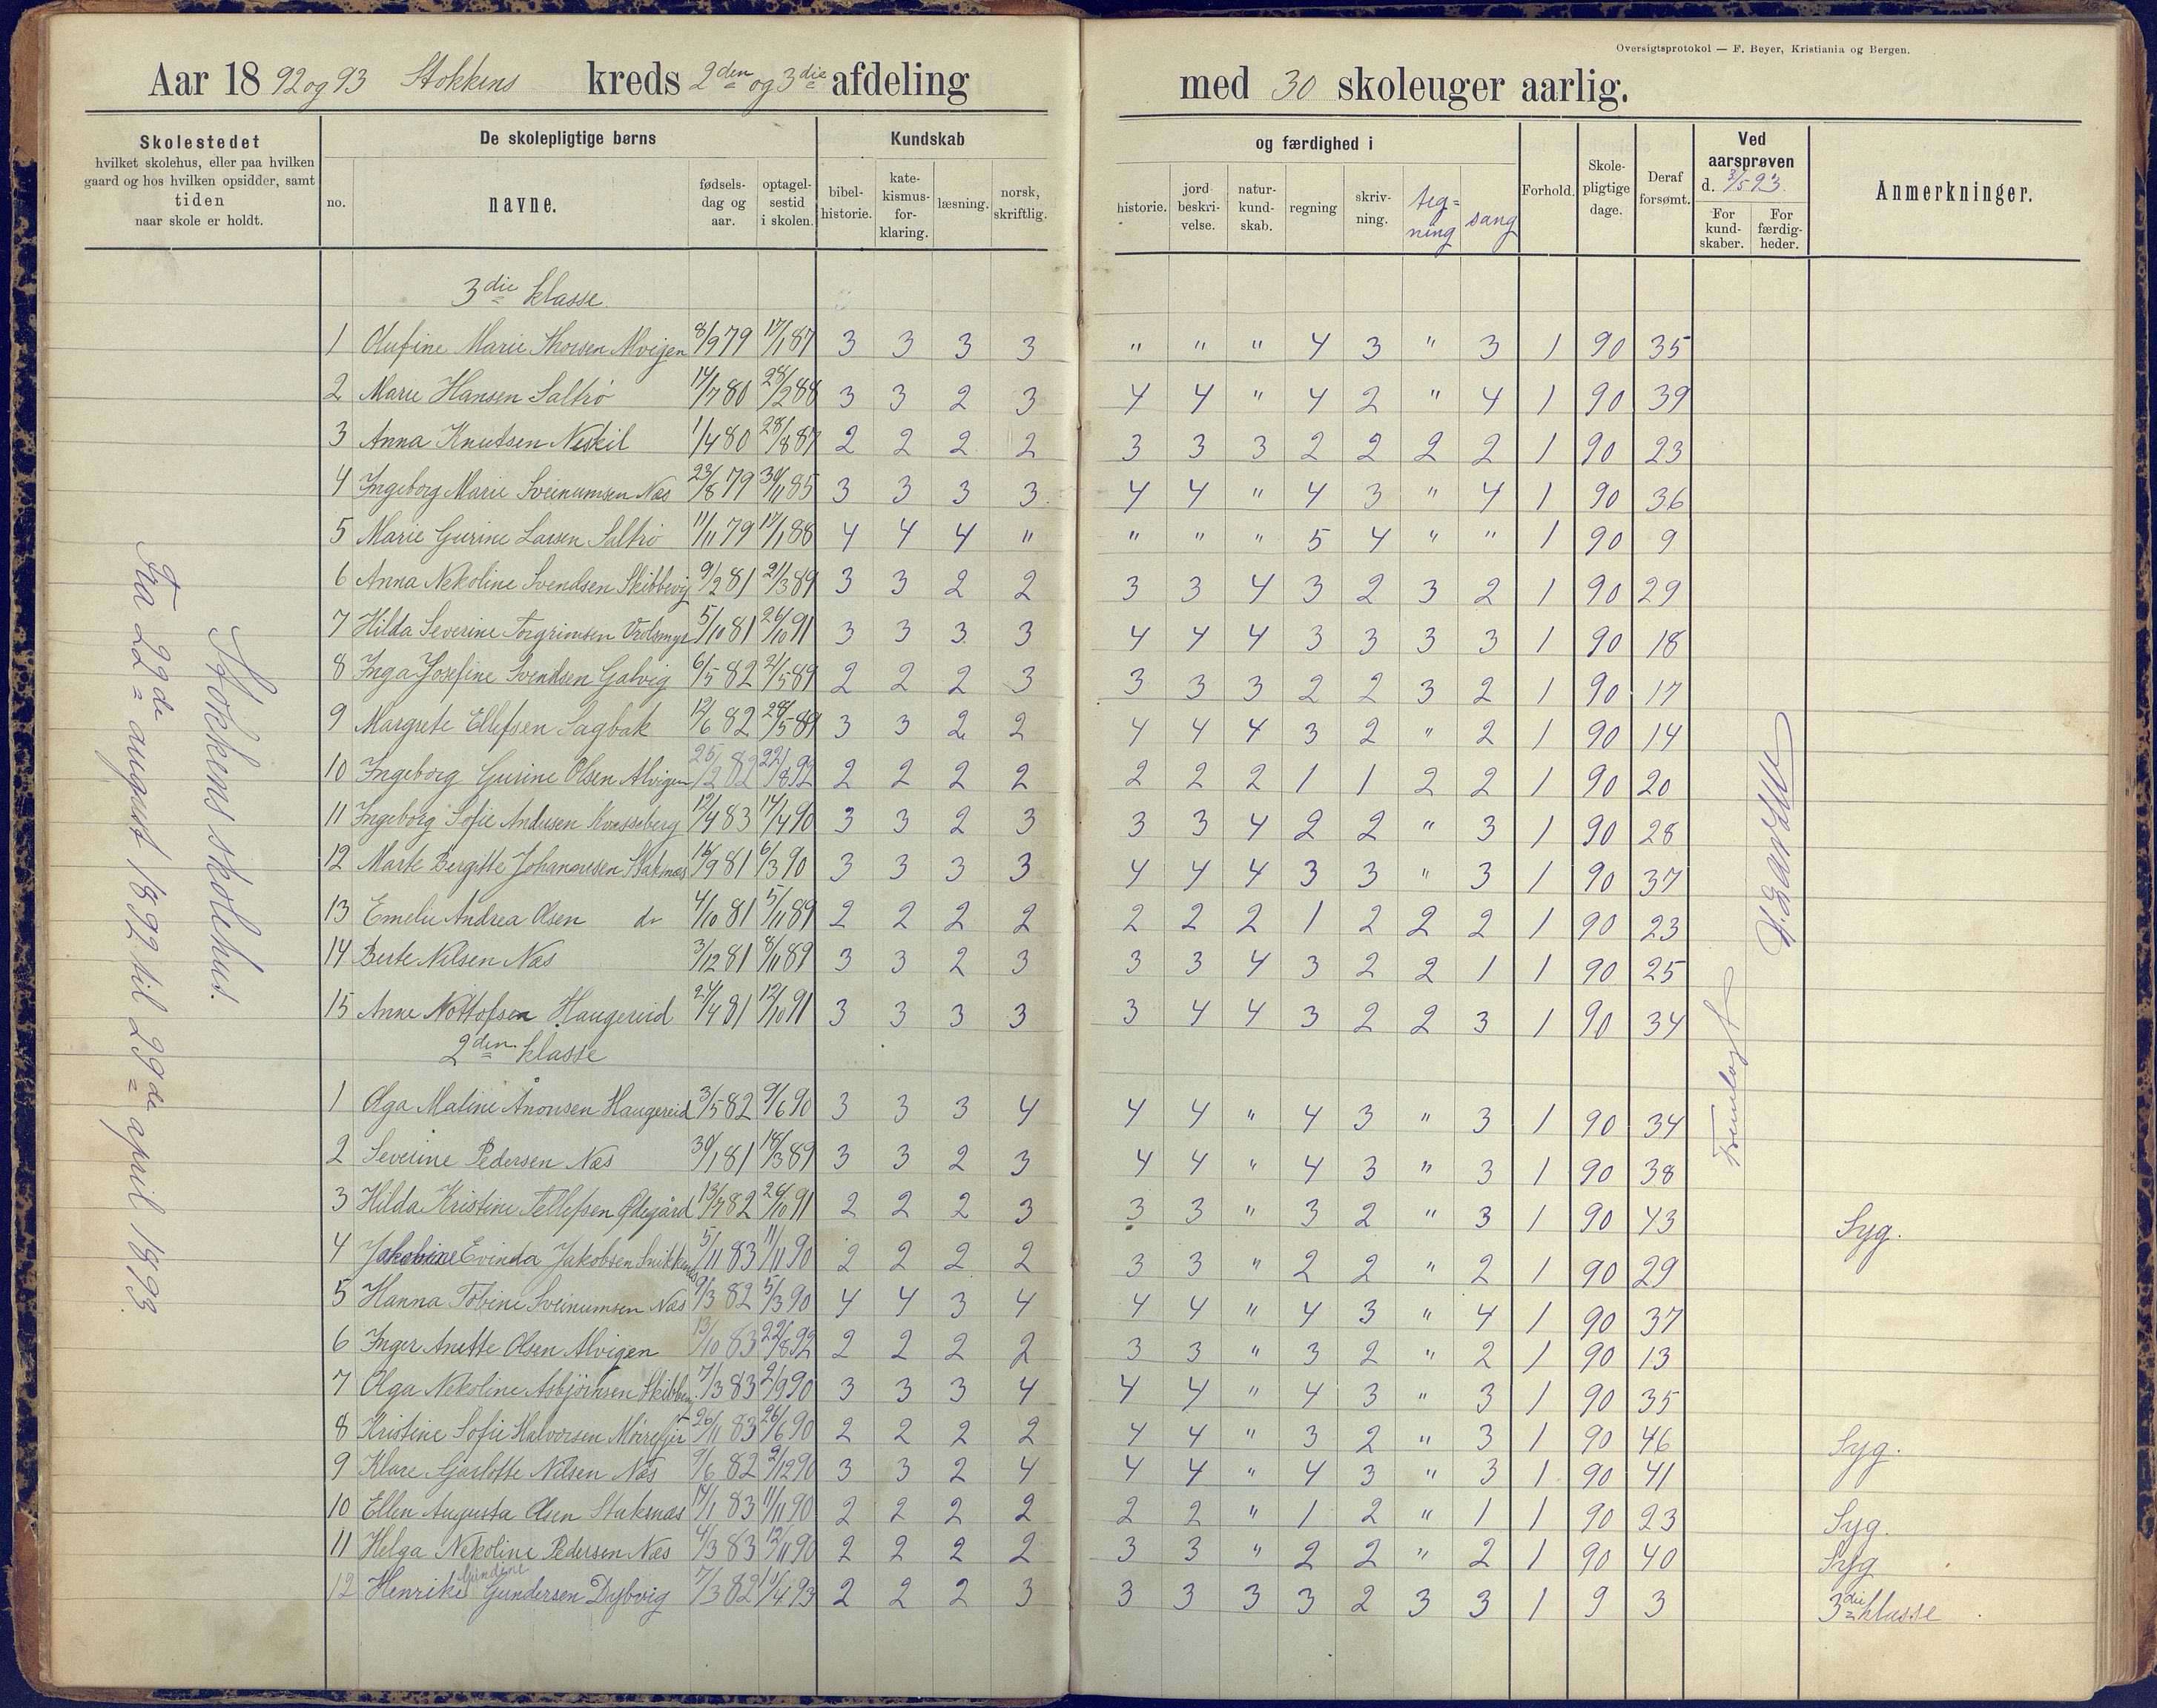 Oversigtsprotokol — F. Beyer, Kristiania og Bergen.
Aar 18 92 og 93 Stokkens kreds 2den og 3die afdeling med 30 skoleuger aarlig.
Skolestedet hvilket skolehus, eller paa hvilken gaard og hos hvilken opsidder, samt tiden naar skole er holdt.
De skolepligtige børns
no. navne. fødsels-dag og aar. optagel-sestid i skolen.
Kundskab og færdighed i
bibel-historie. kate-kismus-for-klaring. læsning. norsk, skriftlig. historie. jord-beskri-velse. natur-kund-skab. regning skriv-ning. teg=ning sang
Forhold. Skole-pligtige dage. Deraf forsømt.
Ved aarsprøven d. 3/5 93.
For kund-skaber. For færdig-heder.
Anmerkninger.
Stokkens skolehus.
Fra 22de august 1892 til 29de april 1893.
3die klasse.
1 Olufine Marie Thorsen Alvigen 8/9 79 17/1 87 3 3 3 3 " " " 4 3 " 3 1 90 35
2 Marie Hansen Saltrø 14/7 80 28/2 88 3 3 2 3 4 4 " 4 2 " 4 1 90 39
3 Anna Knutsen Neskil 1/4 80 28/8 87 2 2 2 2 3 3 3 2 2 2 2 1 90 23
4 Ingeborg Marie Sveinumsen Næs 23/8 79 30/11 85 3 3 3 3 4 4 " 4 3 " 4 1 90 36
5 Marie Gurine Larsen Saltrø 11/11 79 17/1 88 4 4 4 " " " " 5 4 " " 1 90 9
6 Anna Nekoline Svendsen Skibbevig 9/2 81 21/3 89 3 3 2 2 3 3 4 3 2 3 2 1 90 29
7 Hilda Severine Torgrimsen Vrolsmyr 5/10 81 26/10 91 3 3 3 3 4 4 4 3 3 3 3 1 90 18
8 Inga Josefine Svendsen Galvig 6/5 82 21/5 89 2 2 2 3 3 3 3 2 2 3 2 1 90 17
9 Margrete Ellefsen Sagbak 12/6 82 28/5 89 3 3 2 2 4 4 4 3 2 " 2 1 90 14
10 Ingeborg Gurine Olsen Alvigen 25/2 82 22/8 92 2 2 2 2 2 2 2 1 1 2 2 1 90 20
11 Ingeborg Sofie Andersen 12/4 83 14/4 90 3 3 2 3 3 3 4 2 2 " 3 1 90 28
12 Marte Bergitte Johannesen Staknæs 16/9 81 6/3 90 3 3 3 3 4 4 4 3 3 " 3 1 90 37
13 Emelie Andrea Olsen do 4/10 81 5/11 89 2 2 2 2 2 2 2 1 2 2 2 1 90 23
14 Berte Nilsen Næs 3/12 81 8/11 89 3 3 2 3 3 3 4 3 2 2 1 1 90 25
15 Anne Nottofsen Haugereid 24/4 81 12/10 91 3 3 3 3 3 4 4 3 2 2 3 1 90 34
2den klasse
1 Olga Matine Ånonsen Haugereid 3/5 82 9/6 90 3 3 3 4 4 4 " 4 3 " 3 1 90 34
2 Severine Pedersen Næs 30/1 81 18/3 89 3 3 2 3 4 4 " 4 3 " 3 1 90 38
3 Hilda Kristine Tellefsen Ødegård 13/7 82 26/10 91 2 2 2 3 3 3 " 3 2 " 3 1 90 43 Syg.
4 Jakobine Evinda Jakobsen Snikkenes 5/11 83 11/11 90 2 2 2 2 3 3 " 2 2 " 2 1 90 29
5 Hanna Tobine Sveinumsen Næs 9/3 82 5/3 90 4 4 3 4 4 4 " 4 3 " 4 1 90 37
6 Inger Anette Olsen Alvigen 13/10 83 22/8 92 2 2 2 2 3 3 " 3 2 " 2 1 90 13
7 Olga Nekoline Asbjörnsen 7/3 83 2/9 90 3 3 3 4 4 4 " 4 3 " 3 1 90 35
8 Kristine Sofie Halvorsen Mörefjær 26/11 83 26/6 90 2 2 2 2 4 4 " 3 2 " 3 1 90 46 Syg.
9 Klare Sjarlotte Nilsen Næs 9/6 82 9/12 90 3 3 2 4 4 4 " 4 3 " 3 1 90 41
10 Ellen Augusta Olsen Staknæs 14/1 83 11/11 90 2 2 2 2 2 2 " 1 2 " 1 1 90 23 Syg.
11 Helga Nekoline Pedersen Næs 4/3 83 12/11 90 2 2 2 2 3 3 " 2 2 " 2 1 90 40 Syg
12 Henrike Gundine Gundersen Dybvig 7/3 82 11/4 93 2 2 2 3 3 3 3 3 2 3 3 1 9 3 3die klasse
Fremlagt